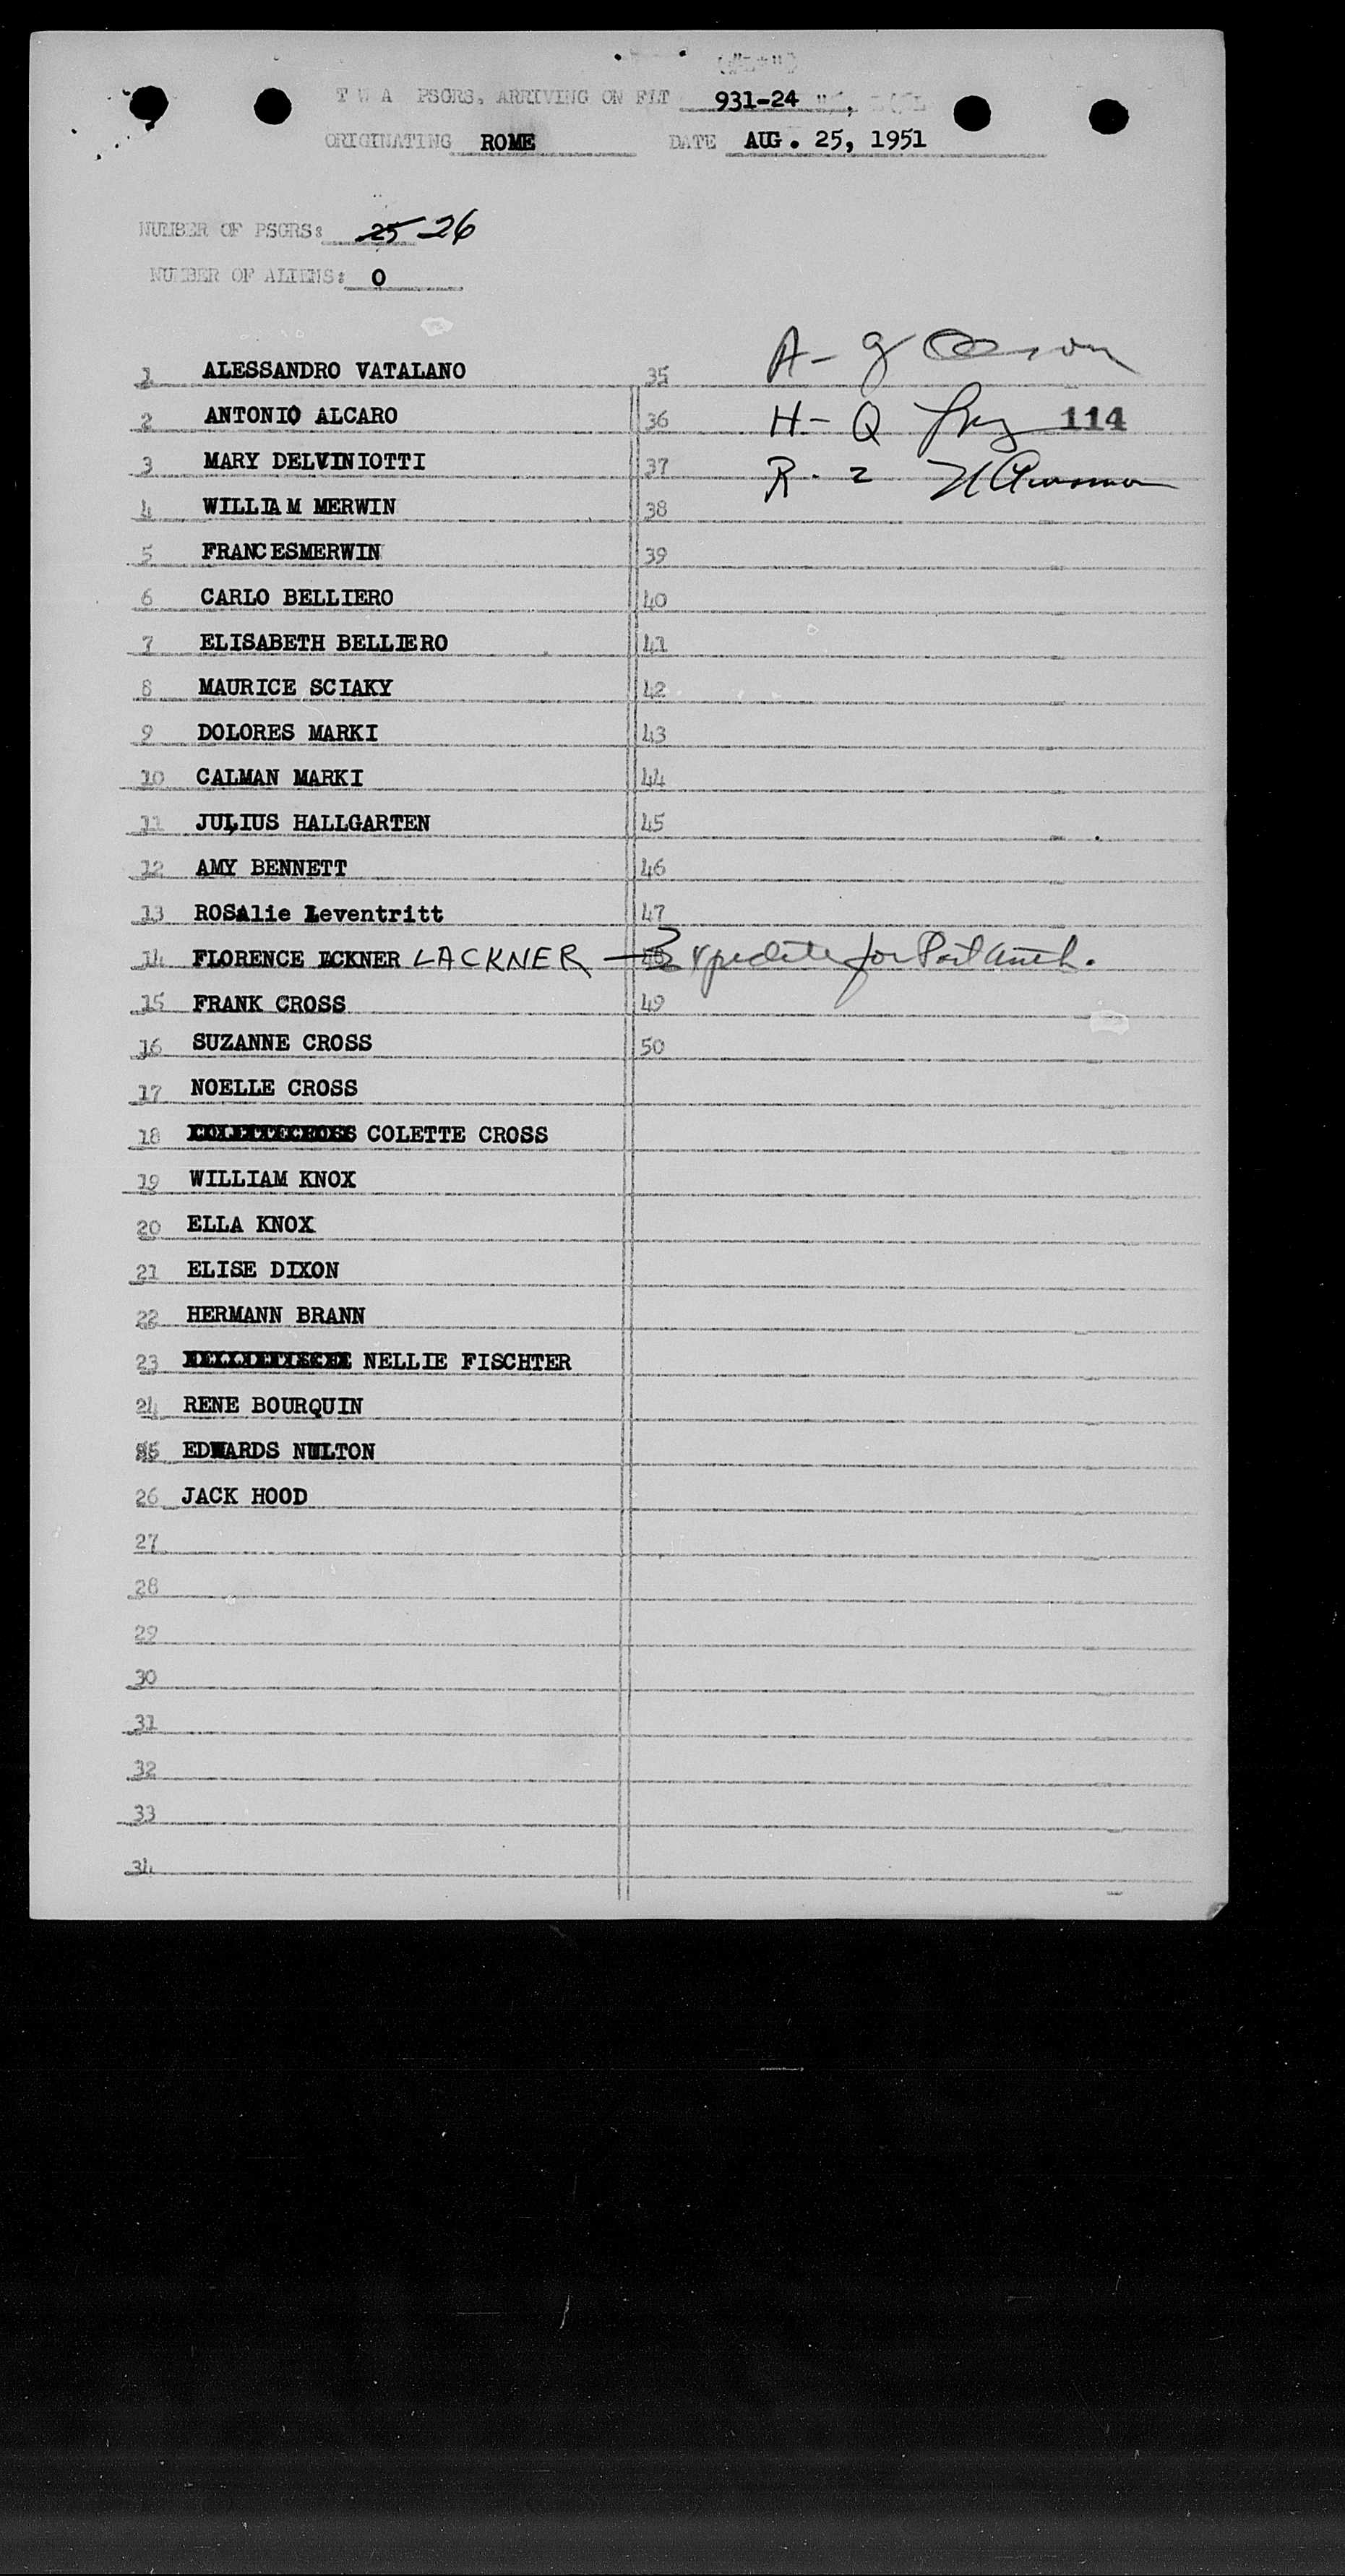 T W A PSGRS. ARRIVING ON FLT 931-24
ORIGINATING ROME DATE AUG. 25, 1951
NUMBER OF PSGRS: 25 26
NUMBER OF ALIENS: 0
1 ALESSANDRO VATALANO
2 ANTONIO ALCARO
3 MARY DELVINIOTTI
4 WILLIAM MERWIN
5 FRANCESMERWIN
6 CARLO BELLIERO
7 ELISABETH BELLIERO
8 MAURICE SCIAKY
9 DOLORES MARKI
10 CALMAN MARKI
11 JULIUS HALLGARTEN
12 AMY BENNETT
13 ROSAlie Leventritt
14 FLORENCE LCKNER LACKNER — Expedite for Port Auth.
15 FRANK CROSS
16 SUZANNE CROSS
17 NOELLE CROSS
18 COLETTECROSS COLETTE CROSS
19 WILLIAM KNOX
20 ELLA KNOX
21 ELISE DIXON
22 HERMANN BRANN
23 NELLIE FISCHTER
24 RENE BOURQUIN
25 EDWARDS NULTON
26 JACK HOOD
27
28
29
30
31
32
33
34
35 A -
36 H - Q 114
37 R - 2
38
39
40
41
42
43
44
45
46
47
49
50